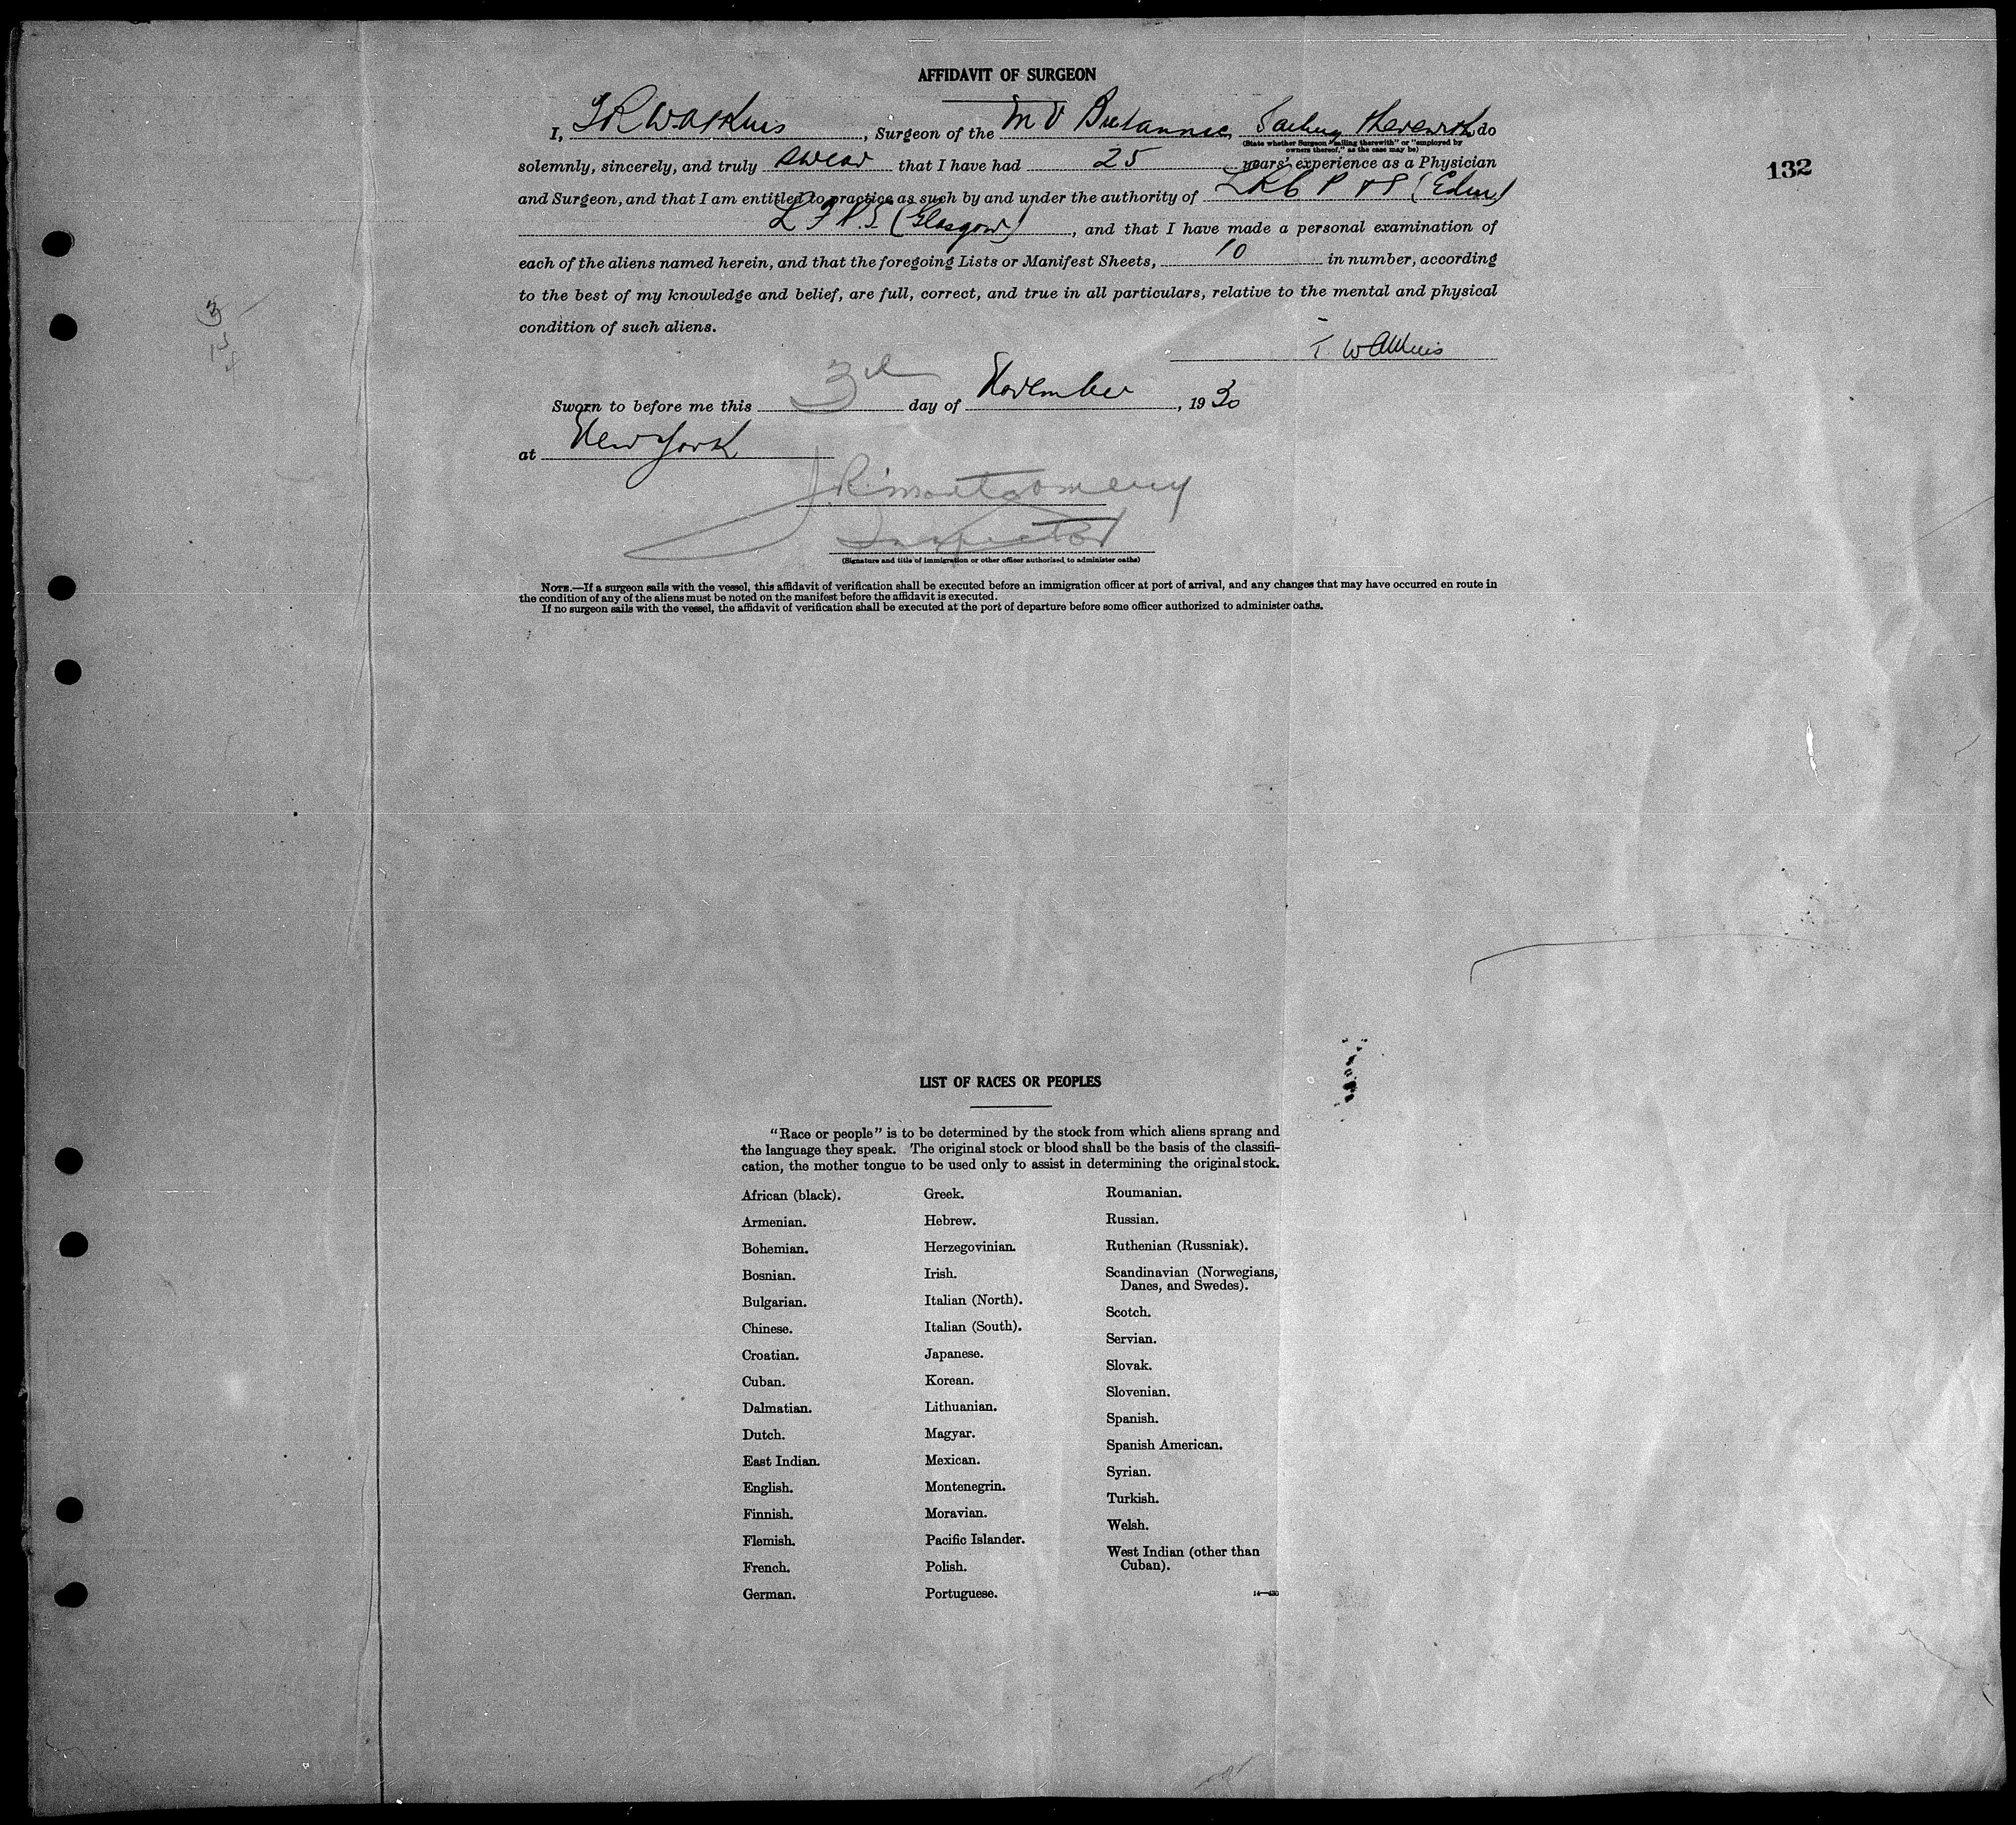 132
AFFIDAVIT OF SURGEON
I, , Surgeon of the M V Britannic, Sailing therewith do
(State whether Surgeon "sailing therewith" or "employed by
owners thereof," as the case may be)
solemnly, sincerely, and truly swear that I have had 25 years' experience as a Physician
and Surgeon, and that I am entitled to practice as such by and under the authority of L R C P & S (Edin)
L F P S (Glasgow), and that I have made a personal examination of
each of the aliens named herein, and that the foregoing Lists or Manifest Sheets, 10 in number, according
to the best of my knowledge and belief, are full, correct, and true in all particulars, relative to the mental and physical
condition of such aliens.
Sworn to before me this 3d day of November, 1930
at New York
J R Montgomery
Inspector
(Signature and title of immigration or other officer authorized to administer oaths)
NOTE.—If a surgeon sails with the vessel, this affidavit of verification shall be executed before an immigration officer at port of arrival, and any changes that may have occurred en route in
the condition of any of the aliens must be noted on the manifest before the affidavit is executed.
If no surgeon sails with the vessel, the affidavit of verification shall be executed at the port of departure before some officer authorized to administer oaths.
LIST OF RACES OR PEOPLES
"Race or people" is to be determined by the stock from which aliens sprang and
the language they speak. The original stock or blood shall be the basis of the classifi-
cation, the mother tongue to be used only to assist in determining the original stock.
African (black).
Armenian.
Bohemian.
Bosnian.
Bulgarian.
Chinese.
Croatian.
Cuban.
Dalmatian.
Dutch.
East Indian.
English.
Finnish.
Flemish.
French.
German.
Greek.
Hebrew.
Herzegovinian.
Irish.
Italian (North).
Italian (South).
Japanese.
Korean.
Lithuanian.
Magyar.
Mexican.
Montenegrin.
Moravian.
Pacific Islander.
Polish.
Portuguese.
Roumanian.
Russian.
Ruthenian (Russniak).
Scandinavian (Norwegians,
Danes, and Swedes).
Scotch.
Servian.
Slovak.
Slovenian.
Spanish.
Spanish American.
Syrian.
Turkish.
Welsh.
West Indian (other than
Cuban).
14—430